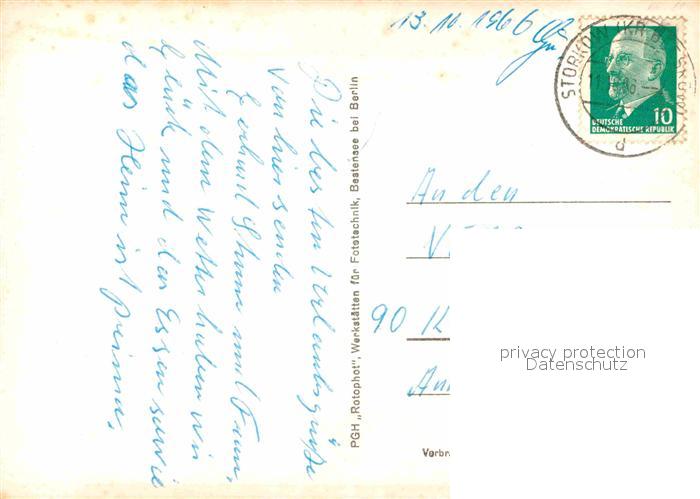 13.10.1966
STORKOW (KR. BEESKOW)
d
10
DEUTSCHE
DEMOKRATISCHE REPUBLIK
Die besten Urlaubsgrüße
von hier senden
Gerhard und Frau,
Mit dem Wetter haben wir
Glück und das Essen sowie
das Heim ist prima,
PGH „Rotophot", Werkstätten für Fototechnik, Bestensee bei Berlin
An den
90 K
An
privacy protection
Datenschutz
Verbr